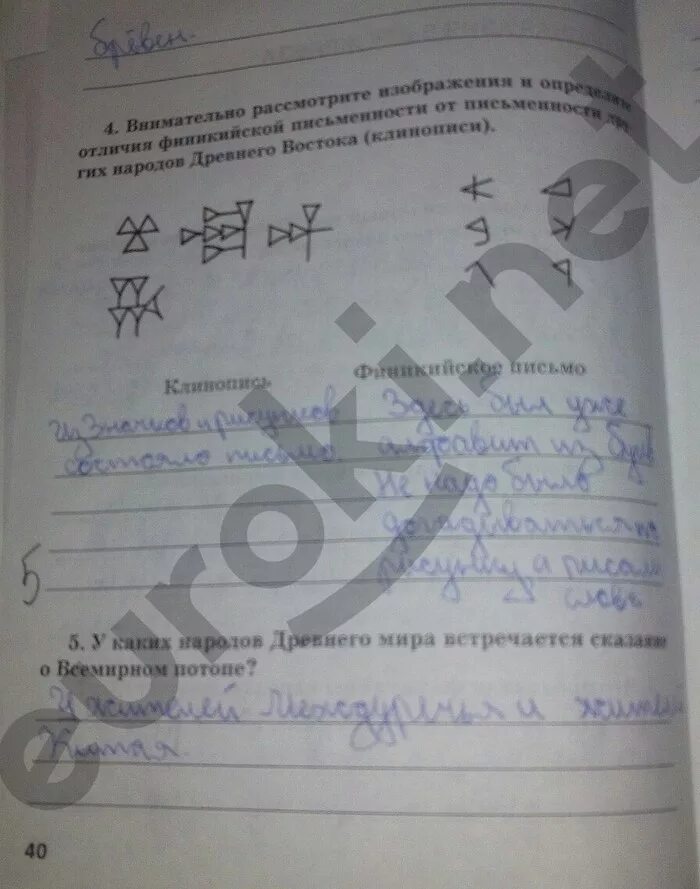 брёвен.
4. Внимательно рассмотрите изображения и определите
отличия финикийской письменности от письменности дру-
гих народов Древнего Востока (клинописи).
Клинопись
Финикийское письмо
Из значков и рисунков
состояло письмо
Здесь был уже
алфавит из букв
Не надо было
догадываться по
рисунку а писали
слова
5
5. У каких народов Древнего мира встречается сказание
о Всемирном потопе?
У жителей Междуречья и жителей
Китая.
40
euroki.net